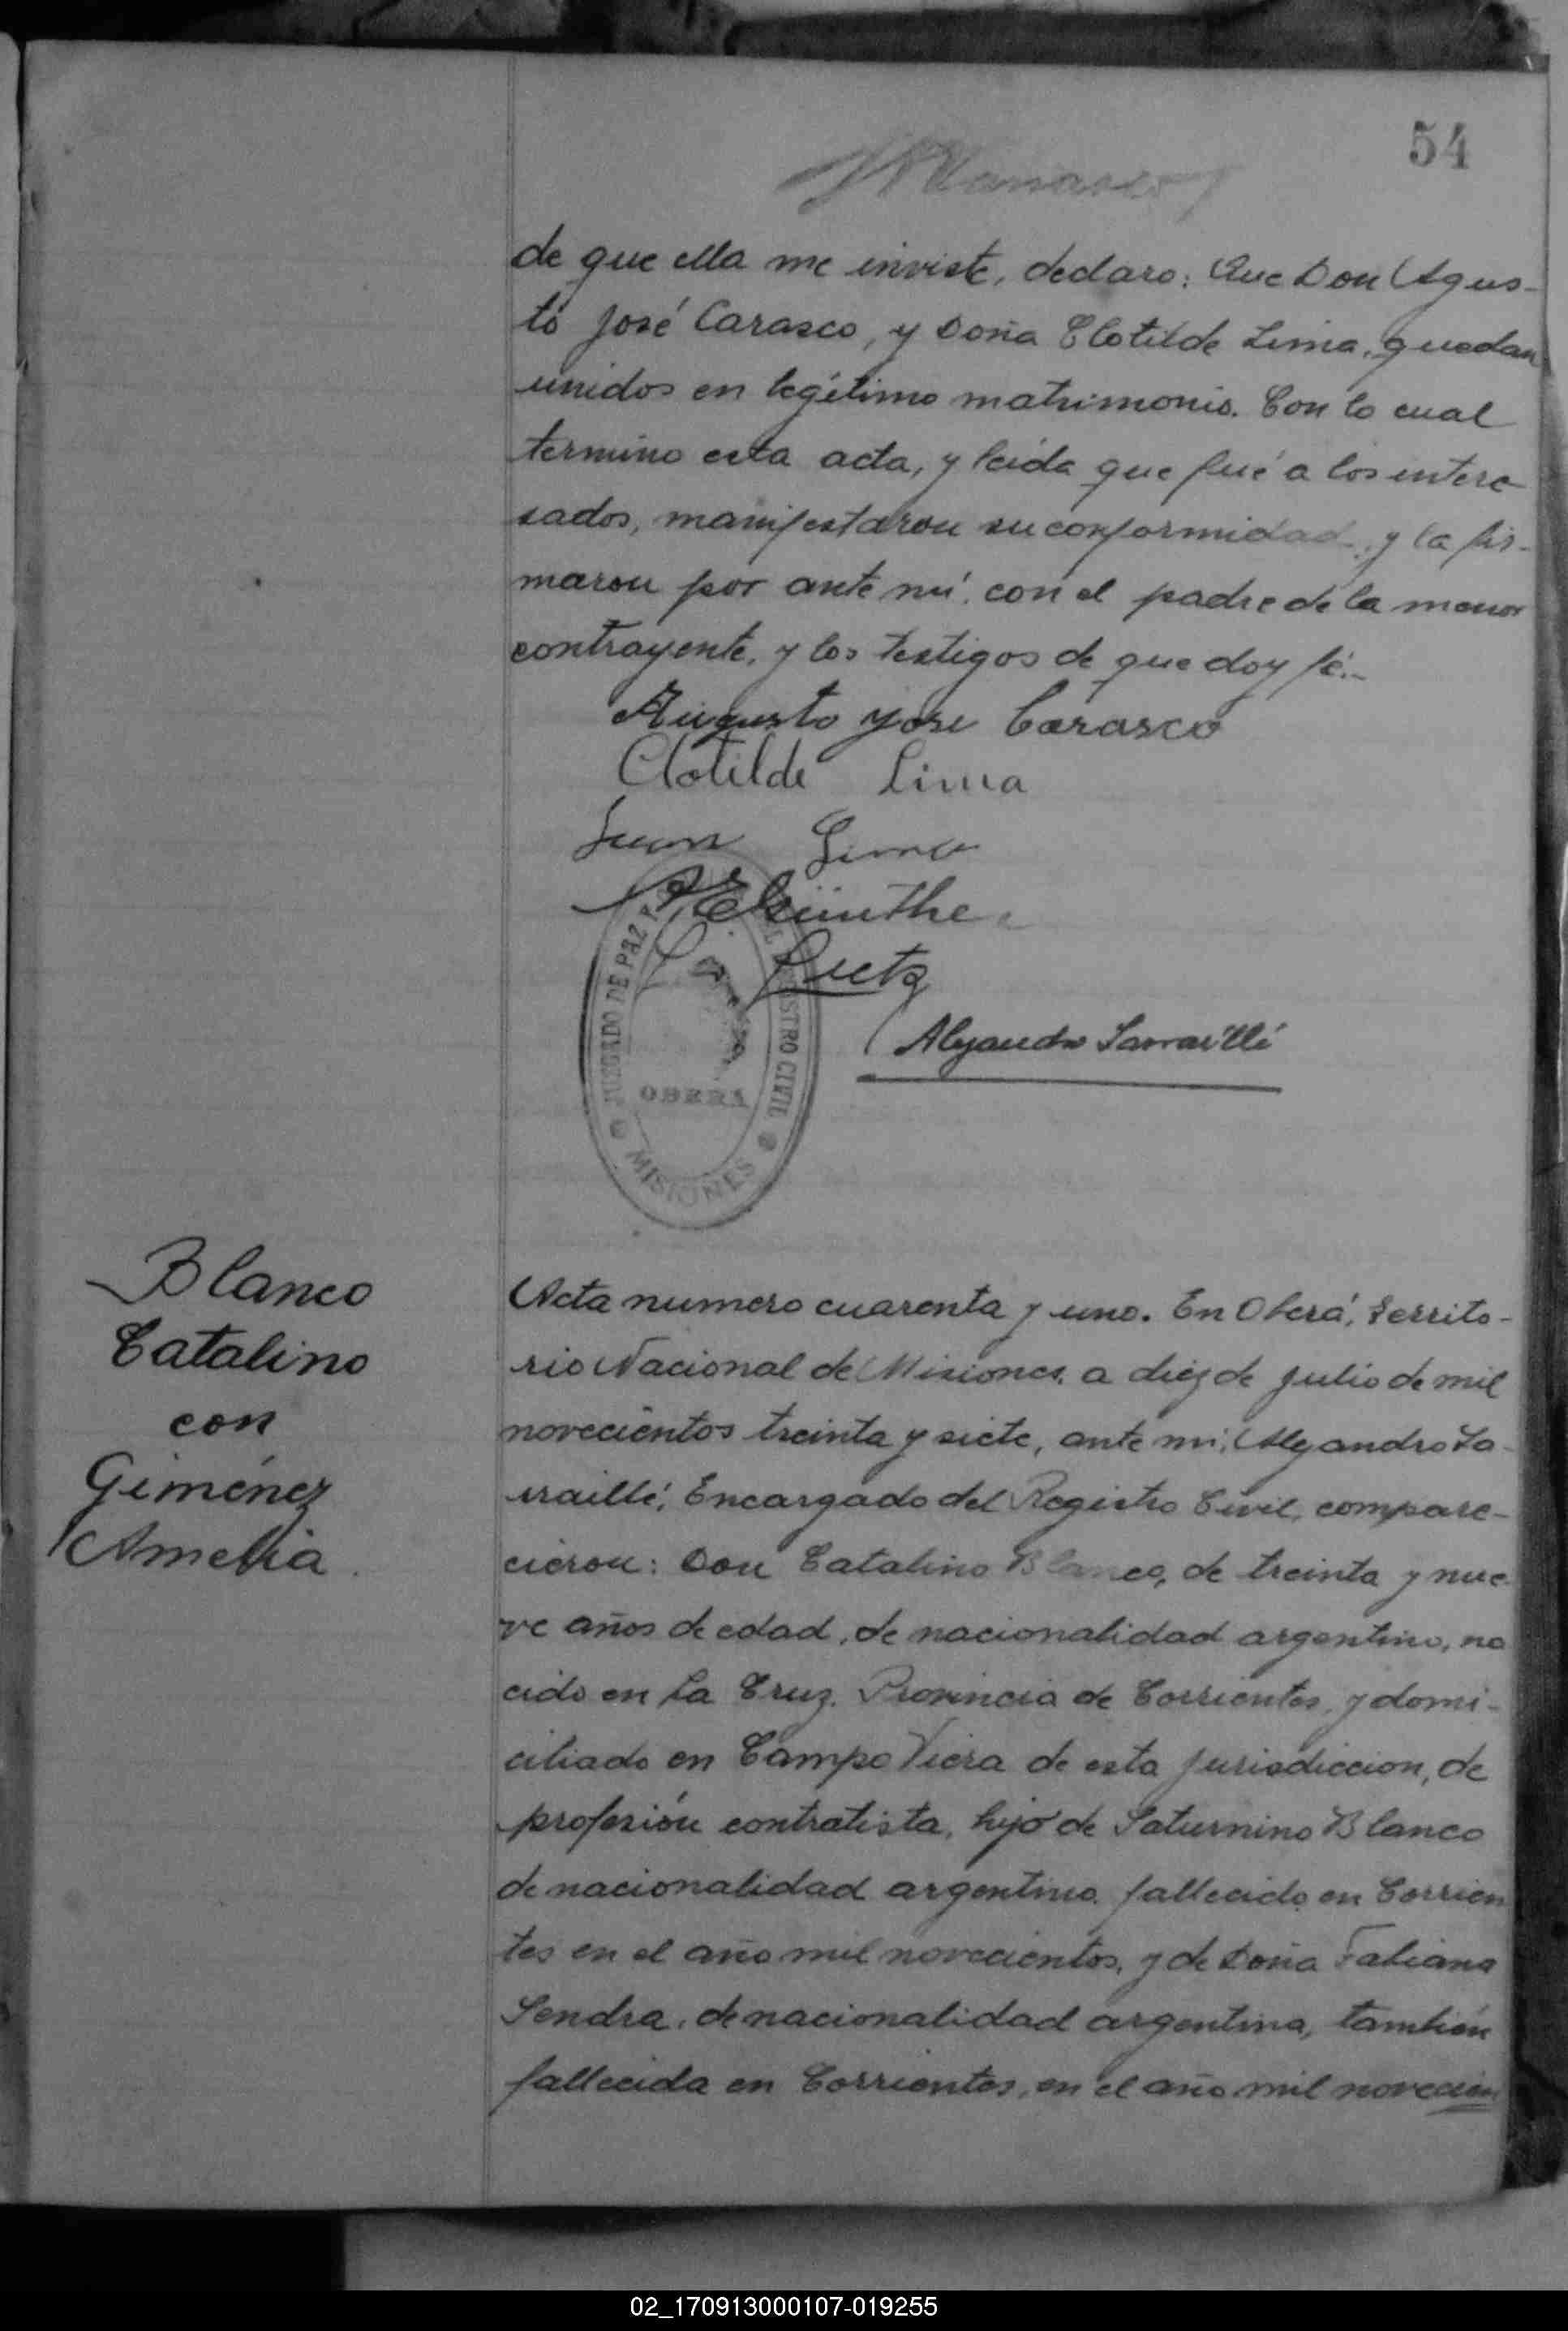 54
de que ella me inviste, declaro: Que Don Agus-
to José Carasco, y Doña Clotilde Lima, quedan
unidos en legitimo matrimonio. Con lo cual
termino esta acta, y leida que fué a los intere
sados, manifestaron su conformidad, y la fir-
maron por ante mí, con el padre de la menor
contrayente, y los testigos de que doy fé.-
Augusto yose Carasco
Clotilde Lima
Juan Lima
JUZGADO DE PAZ
REGISTRO CIVIL
OBERA
MISIONES
Alejandro Sarraillé
Blanco
Catalino
con
Giménez
Amelia
Acta numero cuarenta y uno. En Oberá, Territo-
rio Nacional de Misiones, a diez de julio de mil
novecientos treinta y siete, ante mi, Alejandro Sa-
rraillé, Encargado del Registro Civil, compare-
cieron: Don Catalino Blanco, de treinta y nue-
ve años de edad, de nacionalidad argentino, na
cido en La Cruz, Provincia de Corrientes, y domi-
ciliado en Campo Viera de esta jurisdiccion, de
profesión contratista, hijo de Saturnino Blanco
de nacionalidad argentino, fallecido en Corrien
tes en el año mil novecientos, y de Doña Fabiana
Sendra, de nacionalidad argentina, también
fallecida en Corrientes, en el año mil novecien
02_170913000107-019255